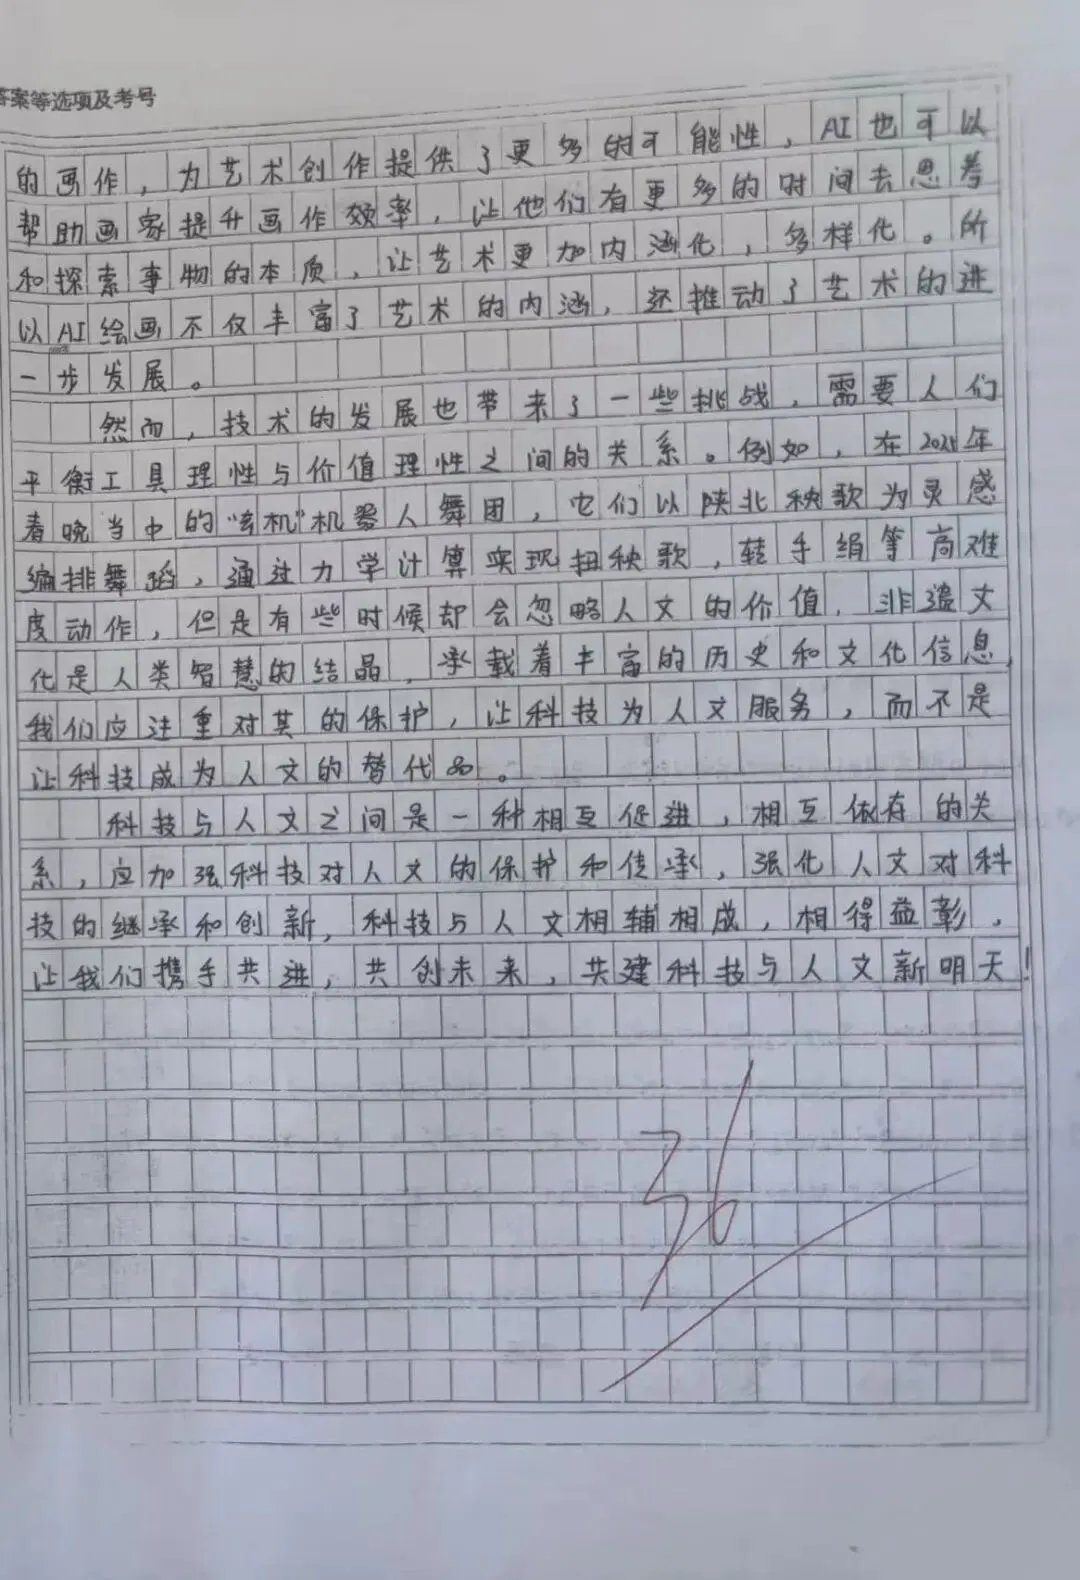 答案等选项及考号
的画作，为艺术创作提供了更多的可能性，AI也可以
帮助画家提升画作效率，让他们有更多的时间去思考
和探索事物的本质，让艺术更加内涵化，多样化。所
以AI绘画不仅丰富了艺术的内涵，还推动了艺术的进
一步发展。
然而，技术的发展也带来了一些挑战，需要人们
平衡工具理性与价值理性之间的关系。例如，在2025年
春晚当中的“玄机”机器人舞团，它们以陕北秧歌为灵感
编排舞蹈，通过力学计算实现扭秧歌，转手绢等高难
度动作，但是有些时候却会忽略人文的价值，非遗文
化是人类智慧的结晶，承载着丰富的历史和文化信息，
我们应注重对其的保护，让科技为人文服务，而不是
让科技成为人文的替代品。
科技与人文之间是一种相互促进，相互依存的关
系，应加强科技对人文的保护和传承，强化人文对科
技的继承和创新，科技与人文相辅相成，相得益彰，
让我们携手共进，共创未来，共建科技与人文新明天！
36